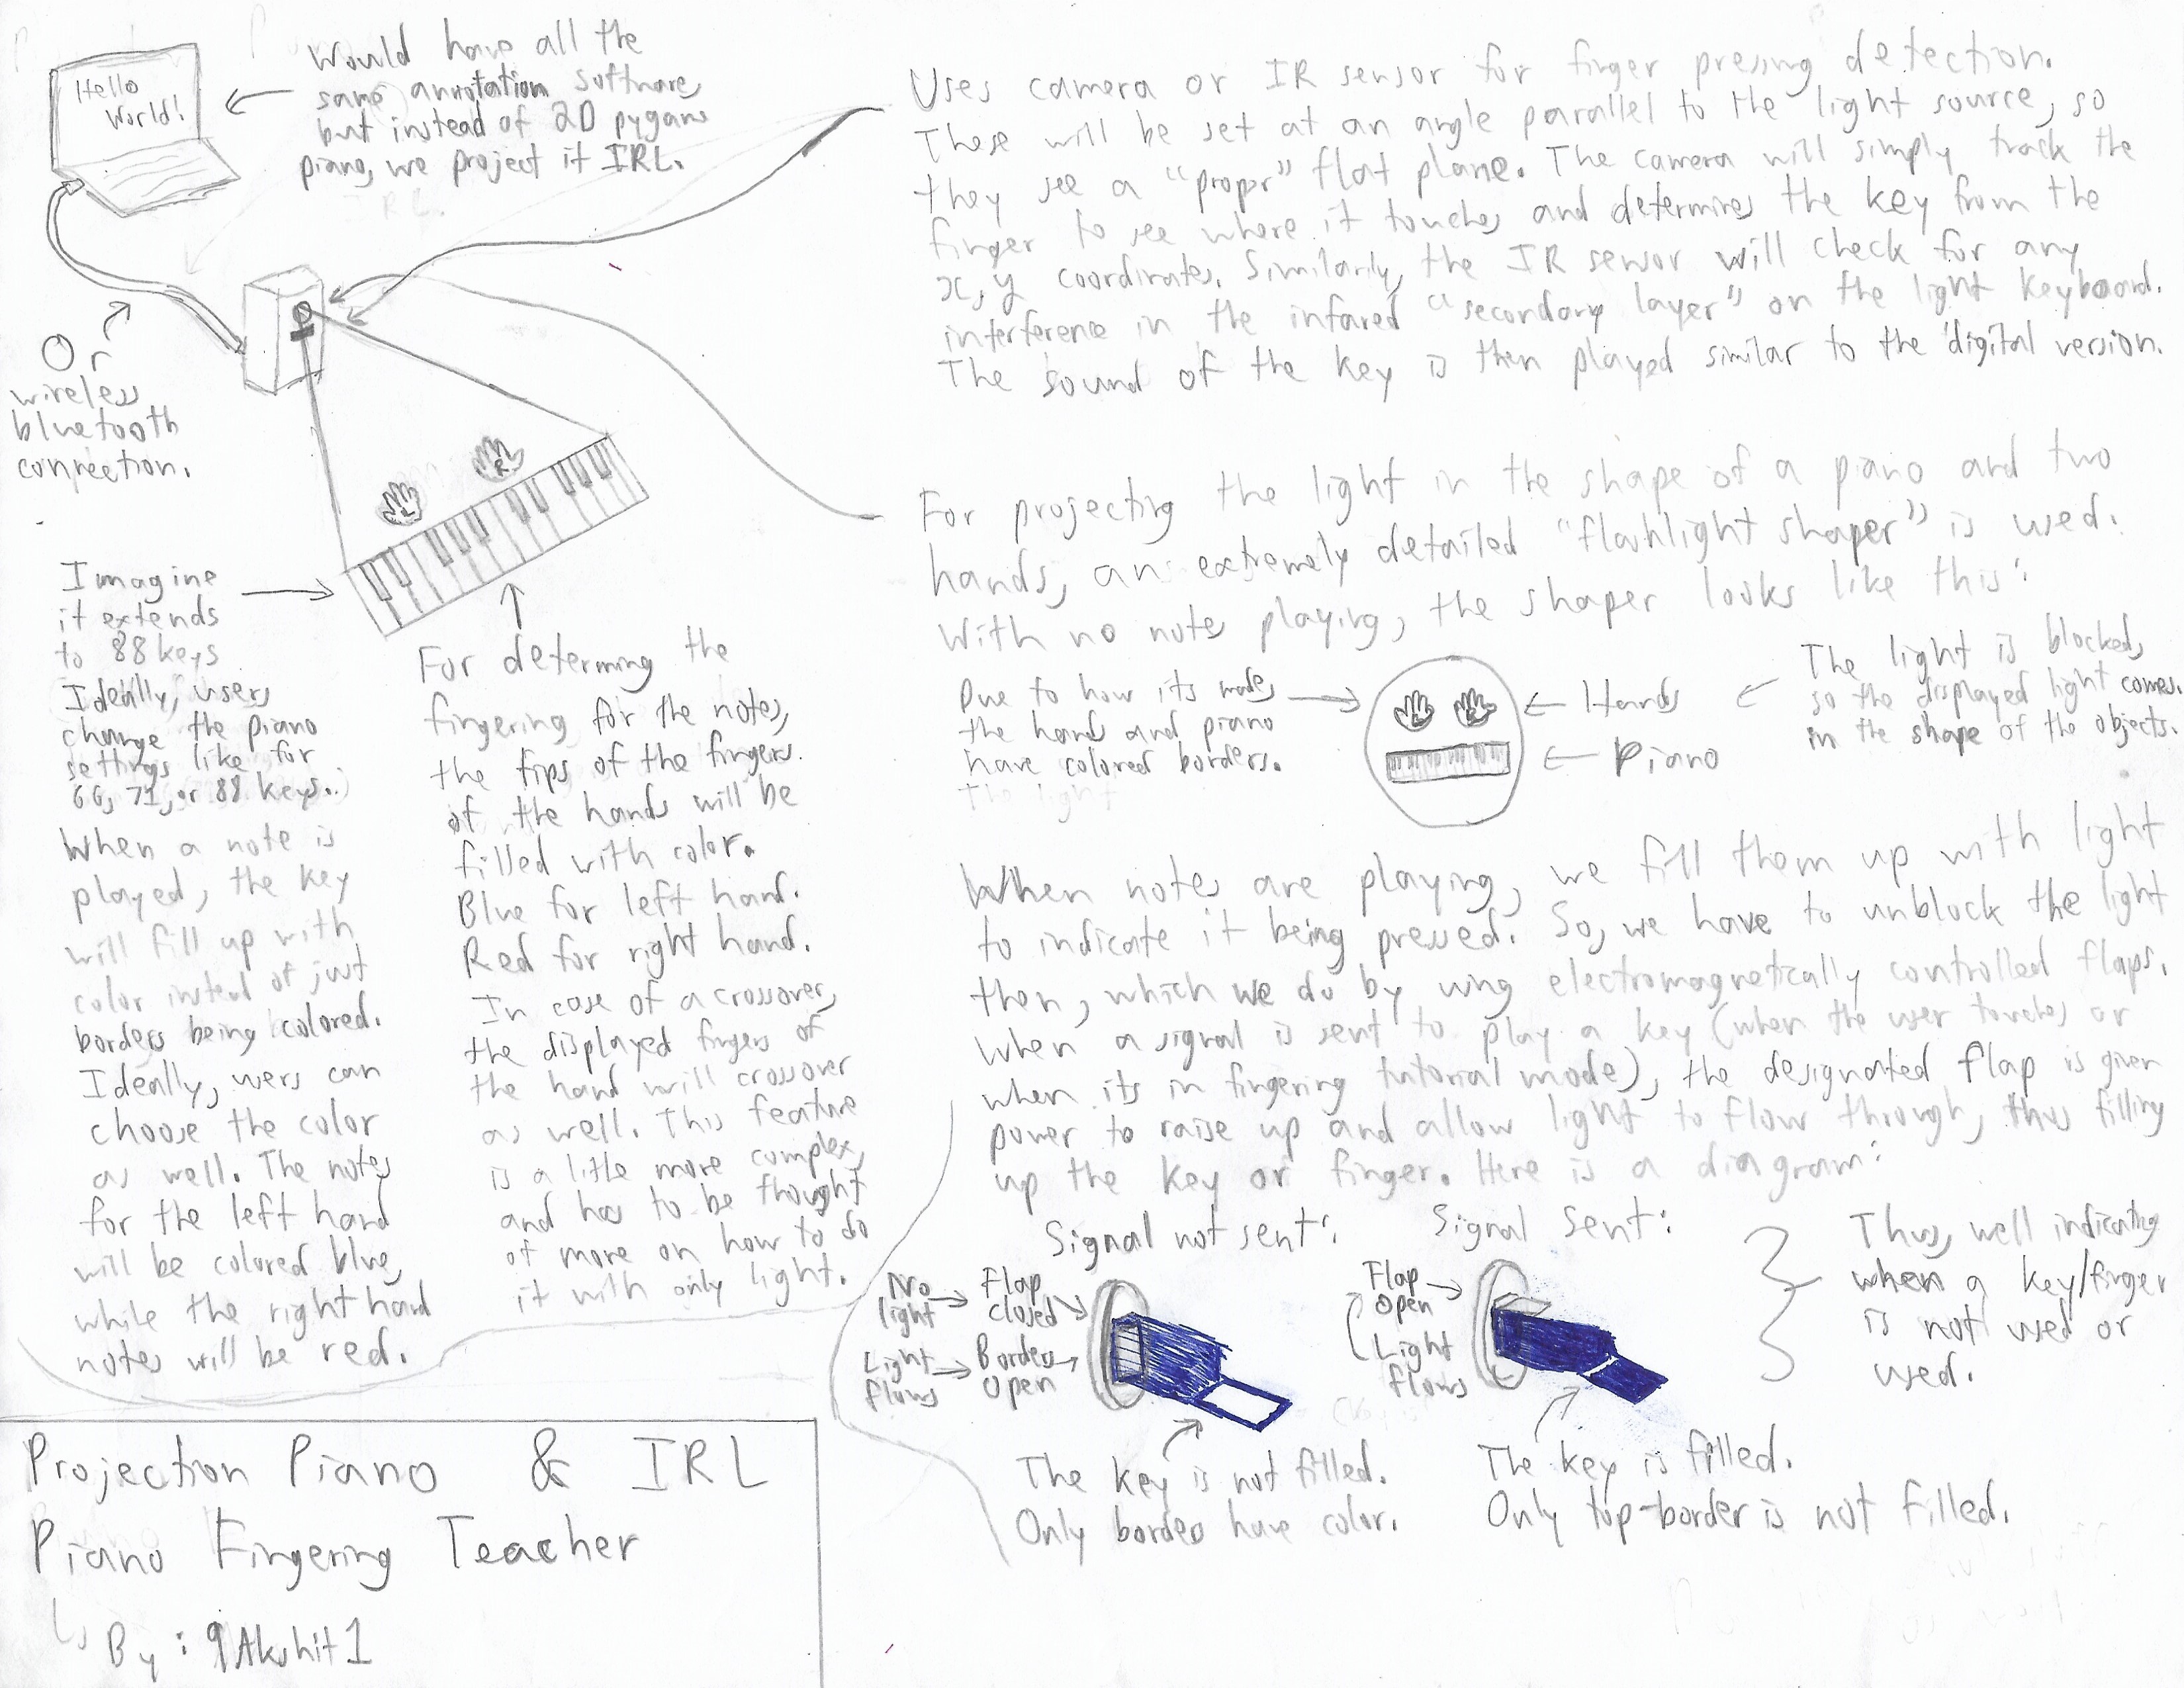 Hello
World!
Would have all the
same annotation software,
but instead of 2D pygame
piano, we project it IRL.
Or
wireless
bluetooth
connection.
Imagine
it extends
to 88 keys
Ideally, users
change the piano
settings like for
66, 71, or 88 keys..
When a note is
played, the key
will fill up with
color instead of just
borders being colored.
Ideally, users can
choose the color
as well. The notes
for the left hand
will be colored blue,
while the right hand
notes will be red.
L
R
For determing the
fingering for the notes,
the tips of the fingers
of the hands will be
filled with color.
Blue for left hand.
Red for right hand.
In case of a crossover,
the displayed fingers of
the hand will crossover
as well. This feature
is a little more complex,
and has to be thought
of more on how to do
it with only light.
Projection Piano & IRL
Piano Fingering Teacher
By: 9Akshit1
Uses camera or IR sensor for finger pressing detection.
These will be set at an angle parallel to the light source, so
they see a "proper" flat plane. The camera will simply track the
finger to see where it touches and determines the key from the
x,y coordinates. Similarily, the IR sensor will check for any
interference in the infared "secondary layer" on the light keyboard.
The sound of the key is then played similar to the digital version.
For projecting the light in the shape of a piano and two
hands, an extremely detailed "flashlight shaper" is used.
With no notes playing, the shaper looks like this:
Due to how its made,
the hands and piano
have colored borders.
The light
Hands
Piano
The light is blocked,
so the displayed light comes
in the shape of the objects.
When notes are playing, we fill them up with light
to indicate it being pressed. So, we have to unblock the light
then, which we do by using electromagnetically controlled flaps.
When a signal is sent to play a key (when the user touches or
when its in fingering tutorial mode), the designated flap is given
power to raise up and allow light to flow through, thus filling
up the key or finger. Here is a diagram:
Signal not sent:
No
light
Flap
closed
Light
flows
Borders
Open
The key is not filled.
Only borders have color.
Signal Sent:
Flap
Open
Light
flows
The key is filled.
Only top-border is not filled.
Thus, well indicating
when a key/finger
is not used or
used.